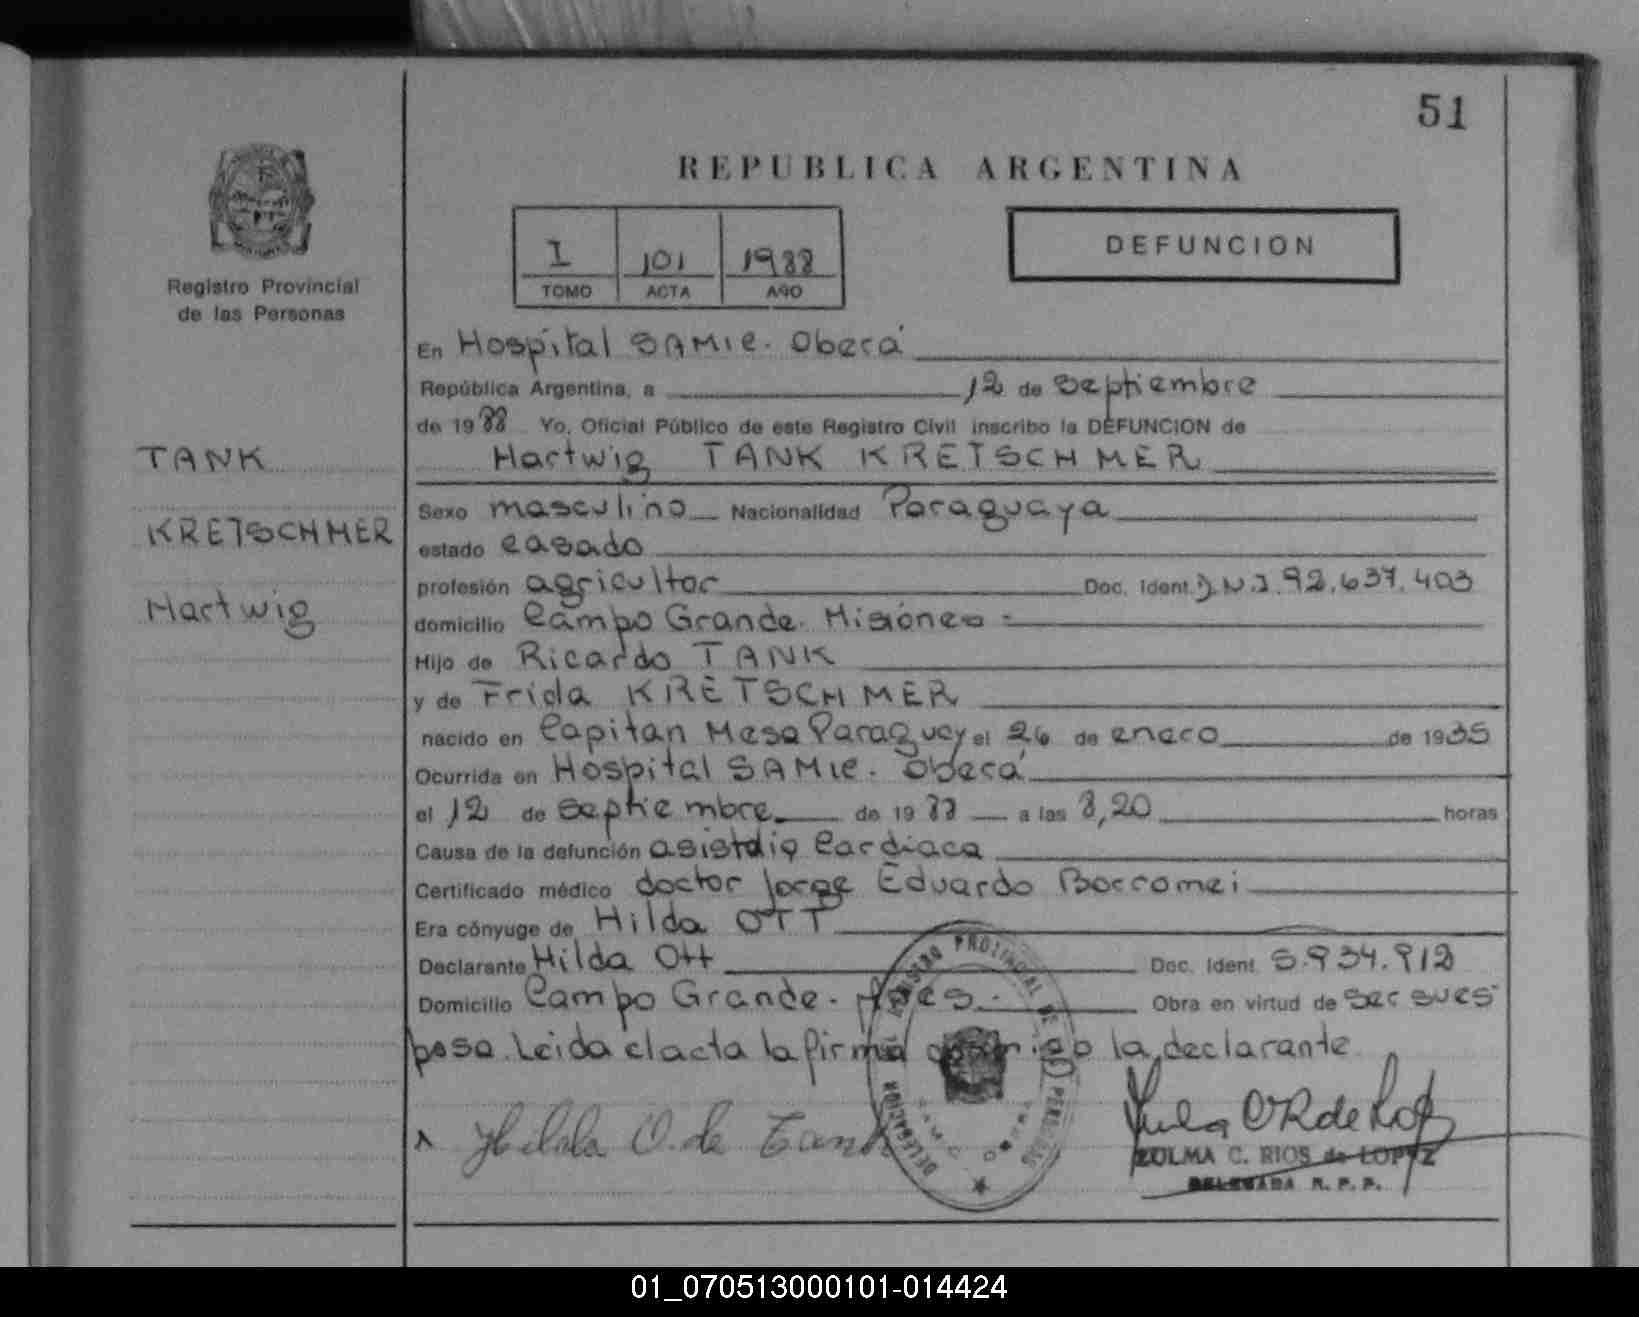 51
REPUBLICA ARGENTINA
I 101 1988
TOMO ACTA AÑO
DEFUNCION
Registro Provincial
de las Personas
TANK
KRETSCHMER
Hartwig
En Hospital SAMIC. Oberá
República Argentina, a 12 de septiembre
de 1988 Yo, Oficial Público de este Registro Civil inscribo la DEFUNCION de
Hartwig TANK KRETSCHMER
Sexo masculino Nacionalidad Paraguaya
estado casado
profesión agricultor Doc. Ident. D.N.I. 92.637.403
domicilio Campo Grande. Misiones
Hijo de Ricardo TANK
y de Frida KRETSCHMER
nacido en Capitan Mesa Paraguay el 26 de enero de 1935
Ocurrida en Hospital SAMIC. Oberá
el 12 de septiembre de 1988 a las 8,20 horas
Causa de la defunción asistolia Cardiaca
Certificado médico doctor Jorge Eduardo Borromei
Era cónyuge de Hilda OTT
Declarante Hilda Ott Doc. Ident. 5.934.912
Domicilio Campo Grande. Mnes. Obra en virtud de ser su es
posa. Leida el acta la firma conmigo la declarante
Hilda O. de Tank
ZULMA C. RIOS de LOPEZ
DELEGADA R. P. P.
REGISTRO PROVINCIAL DE LAS PERSONAS
DELEGACION
01_070513000101-014424